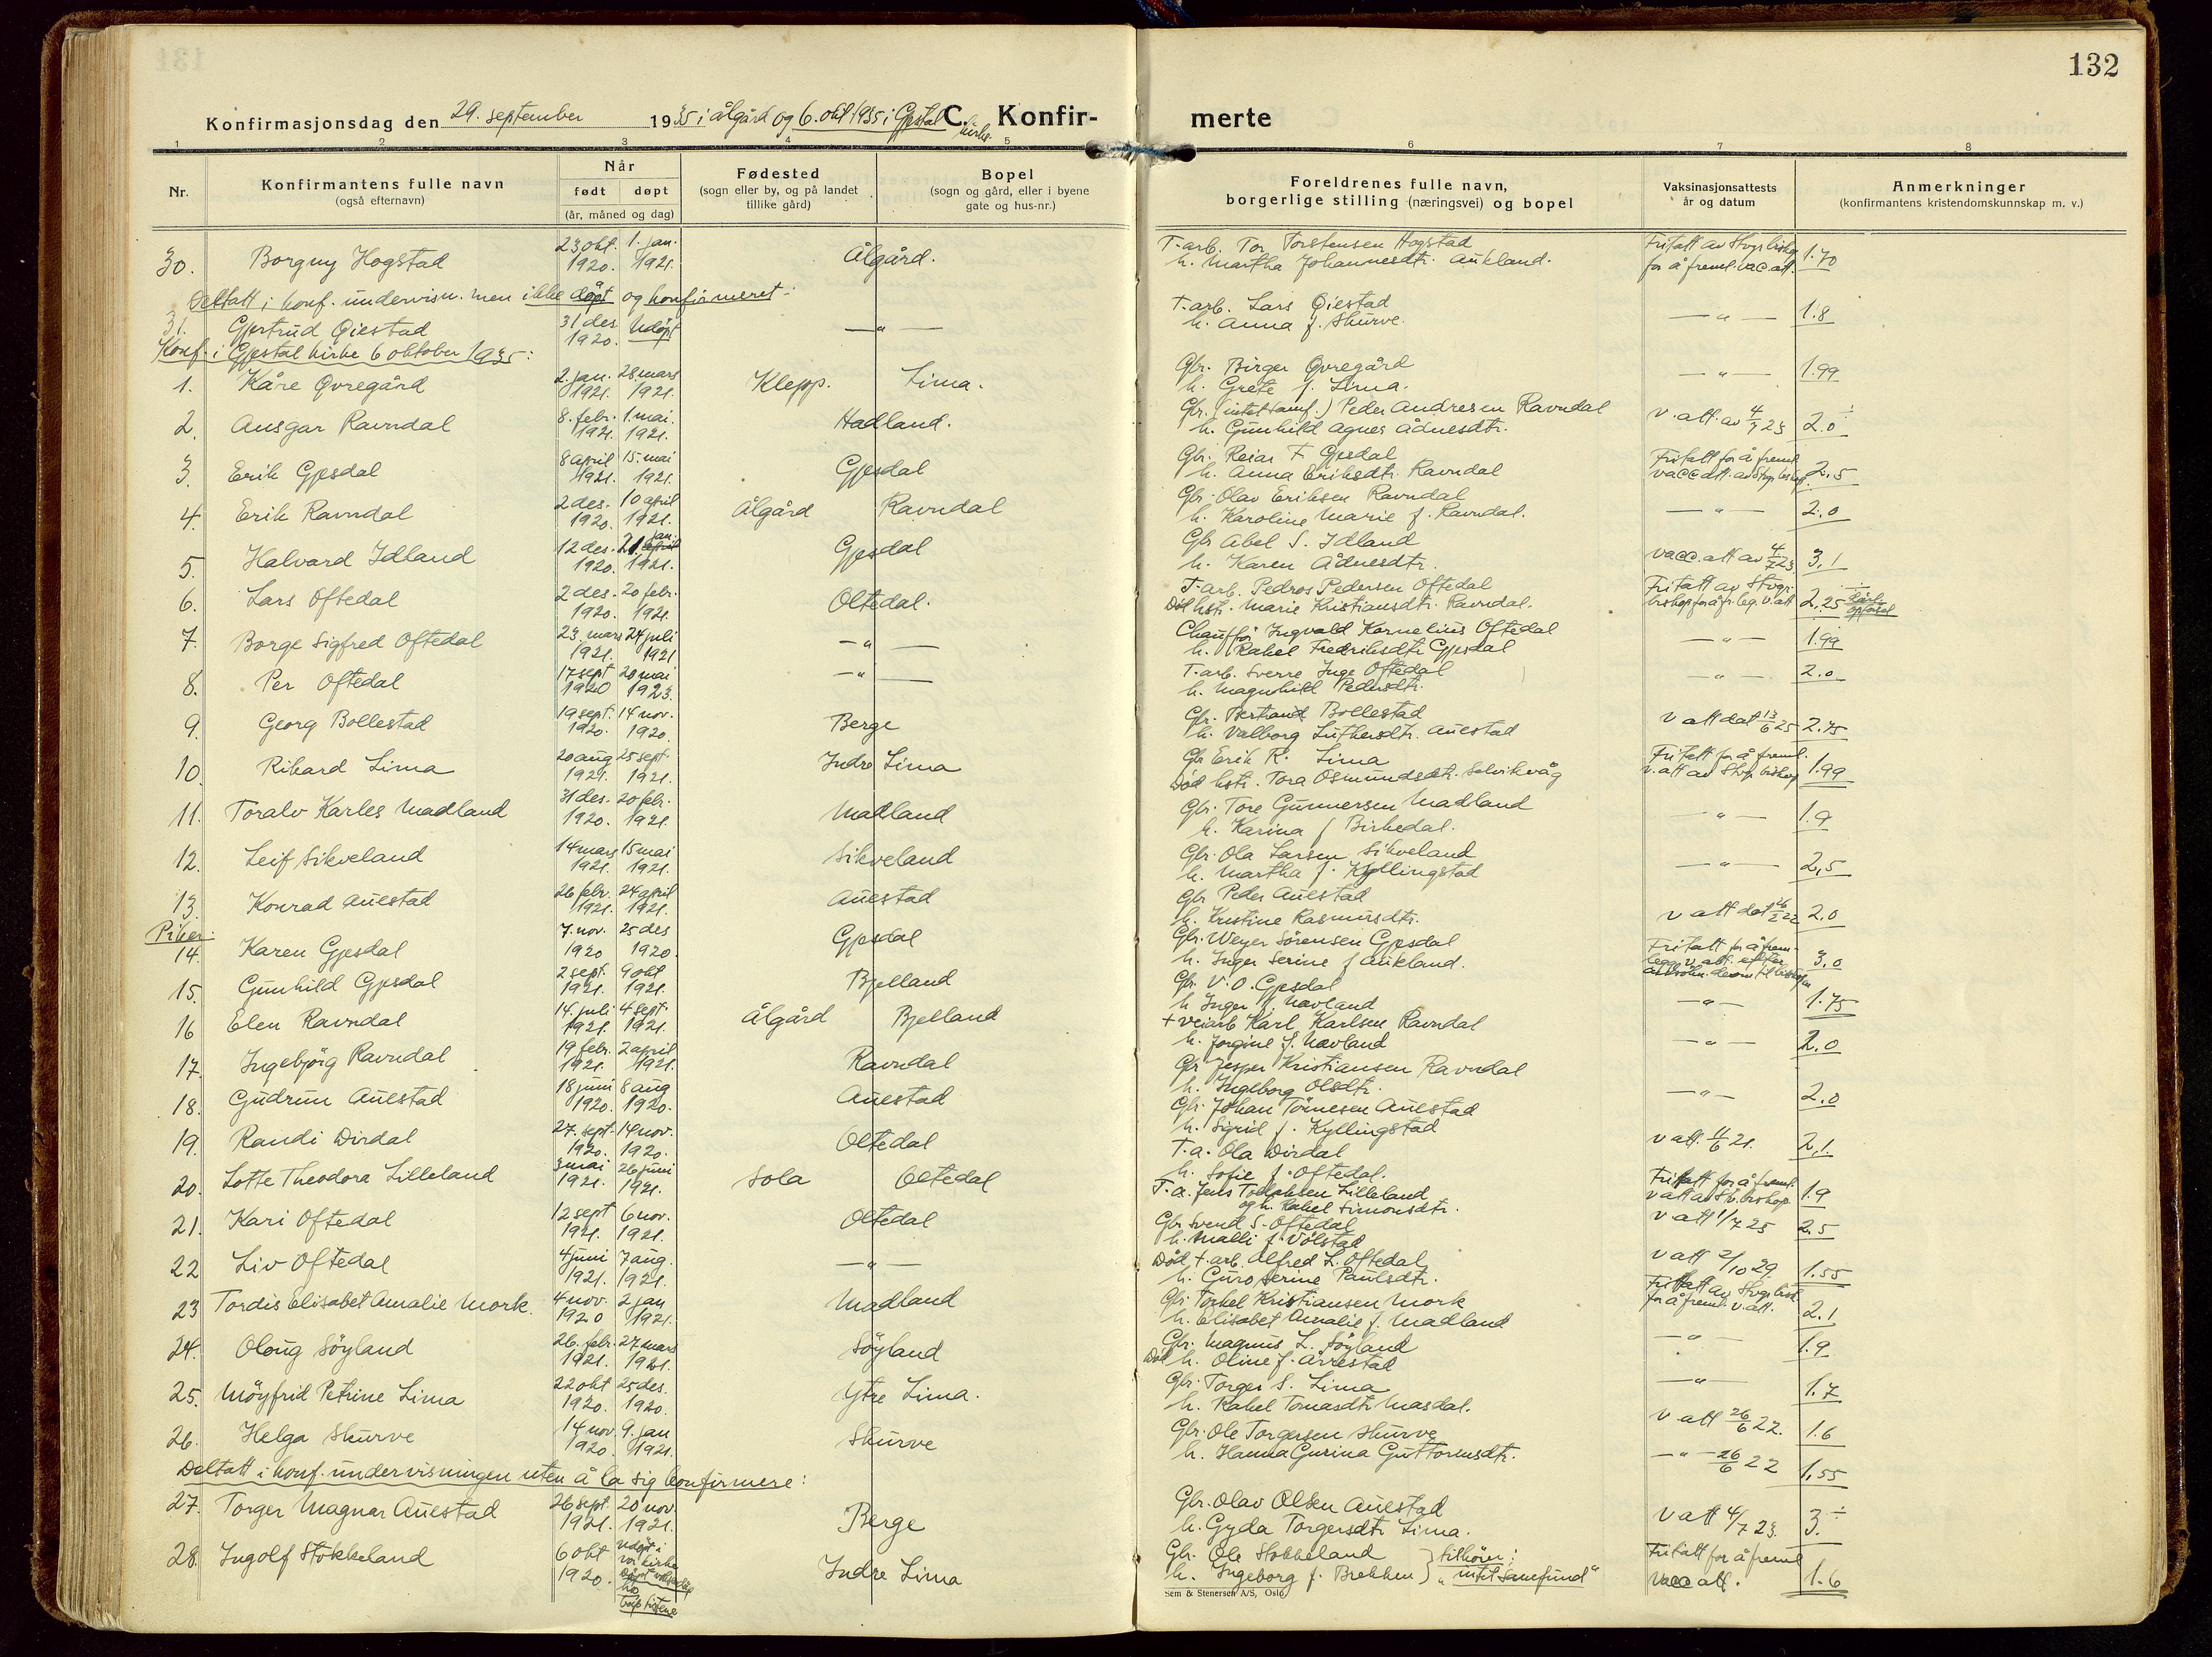 132
Konfirmasjonsdag den 29. september 1935 i Ålgård og 6. okt 1935 i Gjestal kirke. C. Konfir- merte
1 2 3 4 5 6 7 8
Nr.
Konfirmantens fulle navn
(også efternavn)
Når
født døpt
(år, måned og dag)
Fødested
(sogn eller by, og på landet
tillike gård)
Bopel
(sogn og gård, eller i byene
gate og hus-nr.)
Foreldrenes fulle navn,
borgerlige stilling (næringsvei) og bopel
Vaksinasjonsattests
år og datum
Anmerkninger
(konfirmantens kristendomskunnskap m. v.)
30. Borgny Hogstad 23 okt. 1920. 1. jan. 1921. Ålgård. T-arb. Tor Torstensen Hogstad
h. Martha Johannesdtr. Aukland. Fritatt av Stvgr. biskop for å freml. vac. att. 1.70
Deltatt i konf. undervisn. men ikke døpt og konfirmeret:
31. Gjertrud Øiestad 31 des 1920. Udøpt —"— T-arb. Lars Øiestad
h. Anna f. Skurve. —"— 1.8
Konf. i Gjestal kirke 6 oktober 1935:
1. Kåre Øvregård 2. jan. 1921. 28. mars 1921. Klepp. Lima. Gbr. Birger Øvregård
h. Grete f. Lima. —"— 1.99
2. Ansgar Ravndal 8. febr. 1921. 1. mai. 1921. Hadland. Gbr. (intet samf.) Peder Andresen Ravndal
h. Gunhild Agnes Ådnesdtr. v. att. av 4/7 23 2.0
3. Erik Gjesdal 8 april 1921. 15. mai 1921. Gjesdal Gbr. Reiar T Gjesdal
h. Anna Eriksdtr. Ravndal Fritatt for å freml. vacc att. av Stvgr. biskop. 2.5
4. Erik Ravndal 2 des. 1920. 10 april 1921. Ålgård Ravndal Gbr. Olav Eriksen Ravndal
h. Karoline Marie f. Ravndal. —"— 2.0
5. Halvard Idland 12 des. 1920. 21. jan. 1921. Gjesdal Gbr Abel S. Idland
h. Karen Ådnesdtr. vacc. att av 4/7 23 3,1
6. Lars Oftedal 2 des. 1920. 20 febr. 1921. Oltedal. T-arb. Pedros Pedersen Oftedal
Død hstr. Marie Kristiansdtr. Ravndal. Fritatt av Stvgr. biskop for å fr. leg. v. att 2.25
7. Borge Sigfred Oftedal 23 mars 1921. 24 juli 1921 —"— Chauffør Ingvald Kornelius Oftedal
h. Rakel Fredriksdtr Gjesdal —"— 1.99
8. Per Oftedal 17 sept 1920 20 mai 1923. —"— T-arb. Sverre Inge Oftedal
h. Magnhild Pedersdtr. —"— 2.0
9. Georg Bollestad 19 sept. 1920. 14 nov. 1920. Berge Gbr. Bertrand Bollestad
h. Valborg Luthersdtr. Auestad v att dat 13/6 25 2.75
10. Rikard Lima 20 aug 1921. 25 sept. 1921. Indre Lima Gbr Erik R. Lima
Død hstr. Tora Osmundsdtr. Selvikvåg Fritatt for å freml. v. att av Stvgr. biskop 1.99
11. Toralv Karles Madland 31 des. 1920. 20 febr. 1921. Madland Gbr. Tore Gunnersen Madland
h. Karina f Birkedal. —"— 1.9
12. Leif Sikveland 14 mars 1921. 15 mai 1921. Sikveland Gbr. Ola Larsen Sikveland
h. Martha f. Kyllingstad —"— 2,5
13. Konrad Auestad 26 febr. 1921. 24 april 1921. Auestad Gbr Peder Auestad
h. Kristine Rasmusdtr. v att dat 22 2.0
Piker:
14. Karen Gjesdal 7. nov. 1920 25 des 1920. Gjesdal Gbr. Weyer Sörensen Gjesdal
h. Inger Serine f Aukland. Fritatt for å frem- legg v. att. efter 3,0
15. Gunhild Gjesdal 2 sept. 1921. 9 okt 1921. Bjelland Gbr. V. O. Gjesdal
h Inger f. Navland —"— 1.75
16 Elen Ravndal 14. juli 1921. 4 sept. 1921. Ålgård Bjelland + veiarb Karl Karlsen Ravndal
h. Jorgine f. Navland —"— 2.0
17. Ingebjörg Ravndal 19 febr. 1921. 2 april 1921. Ravndal Gbr Jesper Kristiansen Ravndal
h. Ingeborg Olsdtr. —"— 2.0
18. Gudrun Auestad 18 juni 1920. 8 aug 1920. Auestad Gbr. Johan Tönnesen Auestad
h. Sigrid f. Kyllingstad
19. Randi Dirdal 27. sept. 1920. 14 nov. 1920. Oltedal T.a. Ola Dirdal
h. Sofie f. Oftedal. v att. 4/6 21. 2,1.
20. Lotte Theodora Lilleland 3 mai 1921. 26 juni 1921. Sola Oltedal T.a. Jens Tollaksen Lilleland
og h. Rakel Simonsdtr. Fritatt for å freml. v att av St. biskop 1.9
21. Kari Oftedal 12 sept 1921. 6 nov. 1921. Oltedal Gbr Svend S. Oftedal
h. Malli f. Völstad v att 1/7 25 2.5
22 Liv Oftedal 4 juni 1921. 7 aug. 1921. —"— Død t.arb. Alfred L. Oftedal
h. Guro Serine Paulsdtr. v att 2/10 29. 1.55
23 Tordis Elisabet Amalie Mork. 4 nov. 1920 2 jan 1921. Madland Gbr Torkel Kristiansen Mork
h. Elisabet Amalie f. Madland Fritatt av Stvgr. bisk. for å freml. v. att. 2.1
24. Olaug Söyland 26. febr. 1921. 27 mars 1921. Söyland Gbr. Magnus L. Söyland
Død h. Oline f. Årrestad —"— 1.9
25. Möyfrid Petrine Lima 22 okt 1920. 25 des. 1920. Ytre Lima. Gbr. Torger S. Lima
h. Rakel Tomasdtr Masdal. —"— 1.7
26. Helga Skurve 14 nov. 1920. 9. jan 1921. Skurve Gbr. Ole Torgersen Skurve
h. Hanna Gurina Guttormsdtr. v att 26/6 22. 1.6
—"— 26/6 22 1,55
Deltatt i konf. undervisningen uten å la sig konfirmere:
27. Torger Magnar Auestad 26 sept. 1921. 20 nov. 1921. Berge Gbr. Olav Olsen Auestad
h. Gyda Torgersdtr Lima. v att 4/7 23. 3.
28. Ingolf Stokkeland 6 okt 1920. Udöpt i vor kirke Indre Lima Gbr. Ole Stokkeland
h. Ingeborg f. Brekken } tilhörer: "intet samfund" Fritatt for å freml vacc att. 1.6
Sem & Stenersen A/S, Oslo